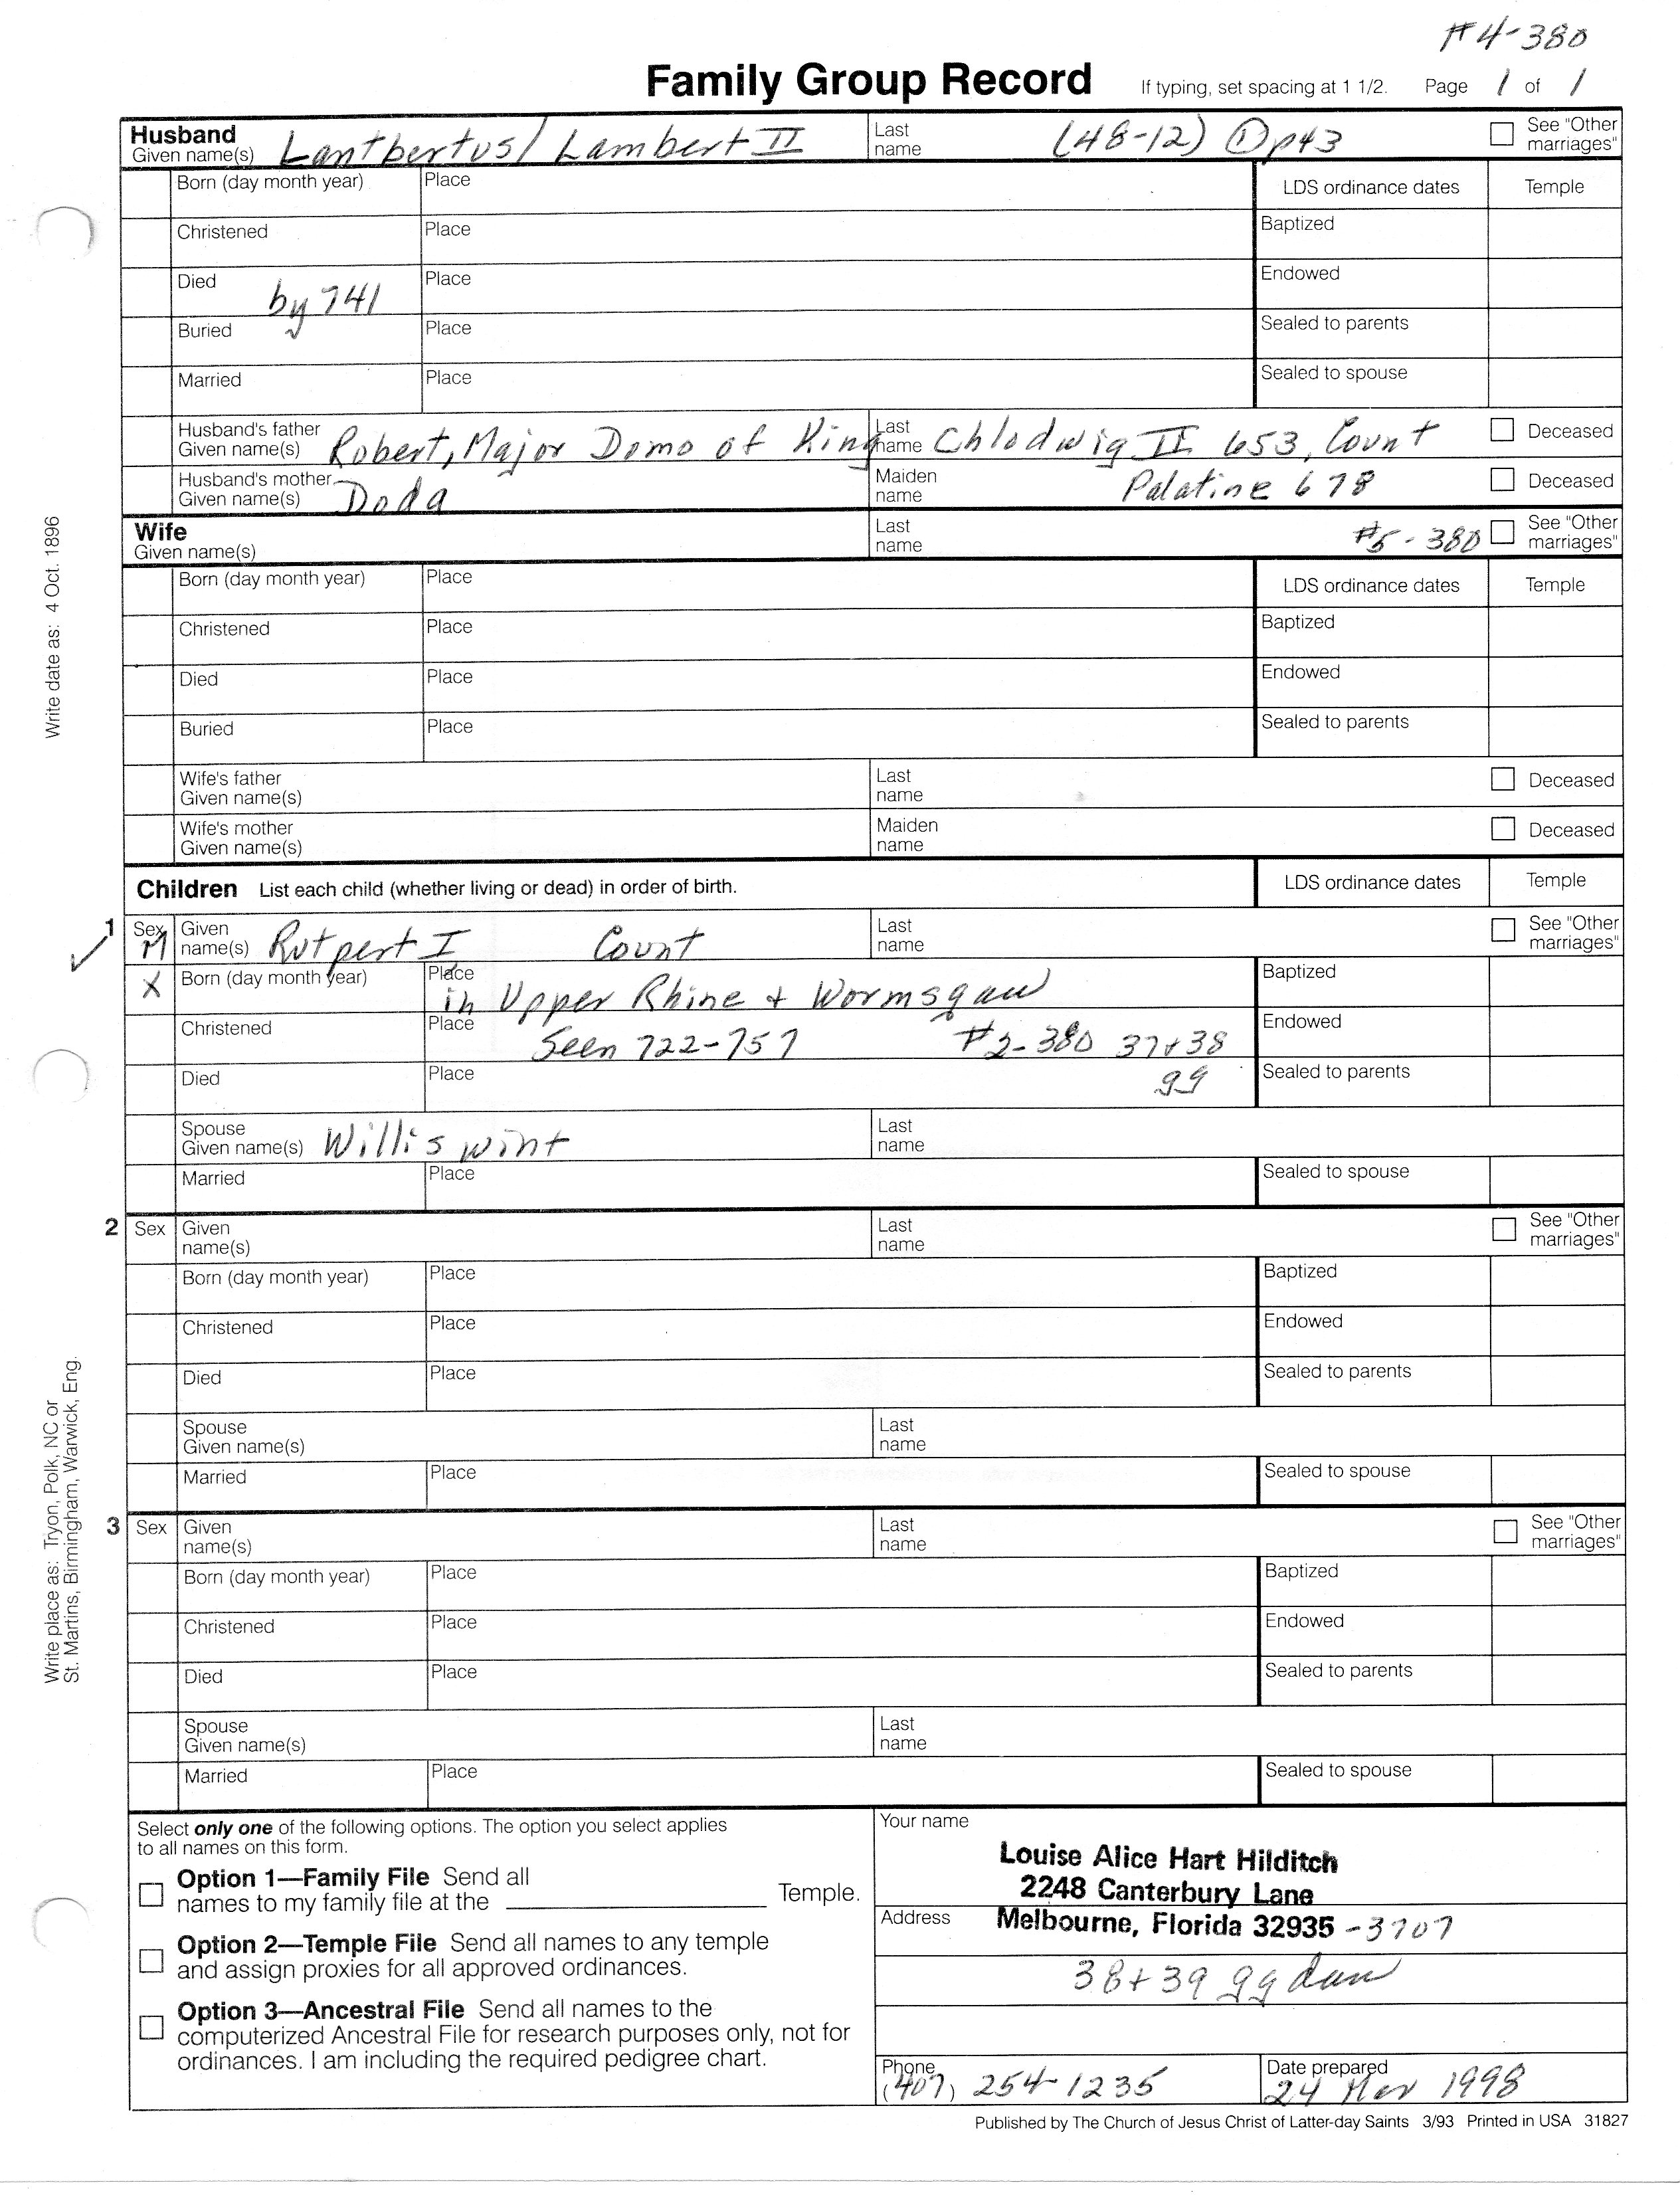 #4-380
Family Group Record If typing, set spacing at 1 1/2. Page 1 of 1
Husband
Given name(s) Lantbertus/ Lambert II Last name (48-12) ① p43 See "Other marriages"
Born (day month year) Place LDS ordinance dates Temple
Christened Place Baptized
Died by 741 Place Endowed
Buried Place Sealed to parents
Married Place Sealed to spouse
Husband's father Given name(s) Robert, Major Domo of King Last name Chlodwig II 653, Count Deceased
Husband's mother Given name(s) Doda Maiden name Palatine 678 Deceased
Wife
Given name(s) Last name #5-380 See "Other marriages"
Born (day month year) Place LDS ordinance dates Temple
Christened Place Baptized
Died Place Endowed
Buried Place Sealed to parents
Wife's father Given name(s) Last name Deceased
Wife's mother Given name(s) Maiden name Deceased
Children List each child (whether living or dead) in order of birth. LDS ordinance dates Temple
1 Sex M Given name(s) Rutpert I Count Last name See "Other marriages"
X Born (day month year) Place in Upper Rhine + Wormsgau Baptized
Christened Place Seen 722-757 #2-380 37+38 Endowed
Died Place gg Sealed to parents
Spouse Given name(s) Williswint Last name
Married Place Sealed to spouse
2 Sex Given name(s) Last name See "Other marriages"
Born (day month year) Place Baptized
Christened Place Endowed
Died Place Sealed to parents
Spouse Given name(s) Last name
Married Place Sealed to spouse
3 Sex Given name(s) Last name See "Other marriages"
Born (day month year) Place Baptized
Christened Place Endowed
Died Place Sealed to parents
Spouse Given name(s) Last name
Married Place Sealed to spouse
Write date as: 4 Oct. 1896
Write place as: Tryon, Polk, NC or
St. Martins, Birmingham, Warwick, Eng.
Select only one of the following options. The option you select applies
to all names on this form.
Option 1—Family File Send all
names to my family file at the Temple.
Option 2—Temple File Send all names to any temple
and assign proxies for all approved ordinances.
Option 3—Ancestral File Send all names to the
computerized Ancestral File for research purposes only, not for
ordinances. I am including the required pedigree chart.
Your name
Louise Alice Hart Hilditch
2248 Canterbury Lane
Address Melbourne, Florida 32935 -3707
38+39 gg dau
Phone (407) 254-1235 Date prepared 24 Mar 1998
Published by The Church of Jesus Christ of Latter-day Saints 3/93 Printed in USA 31827